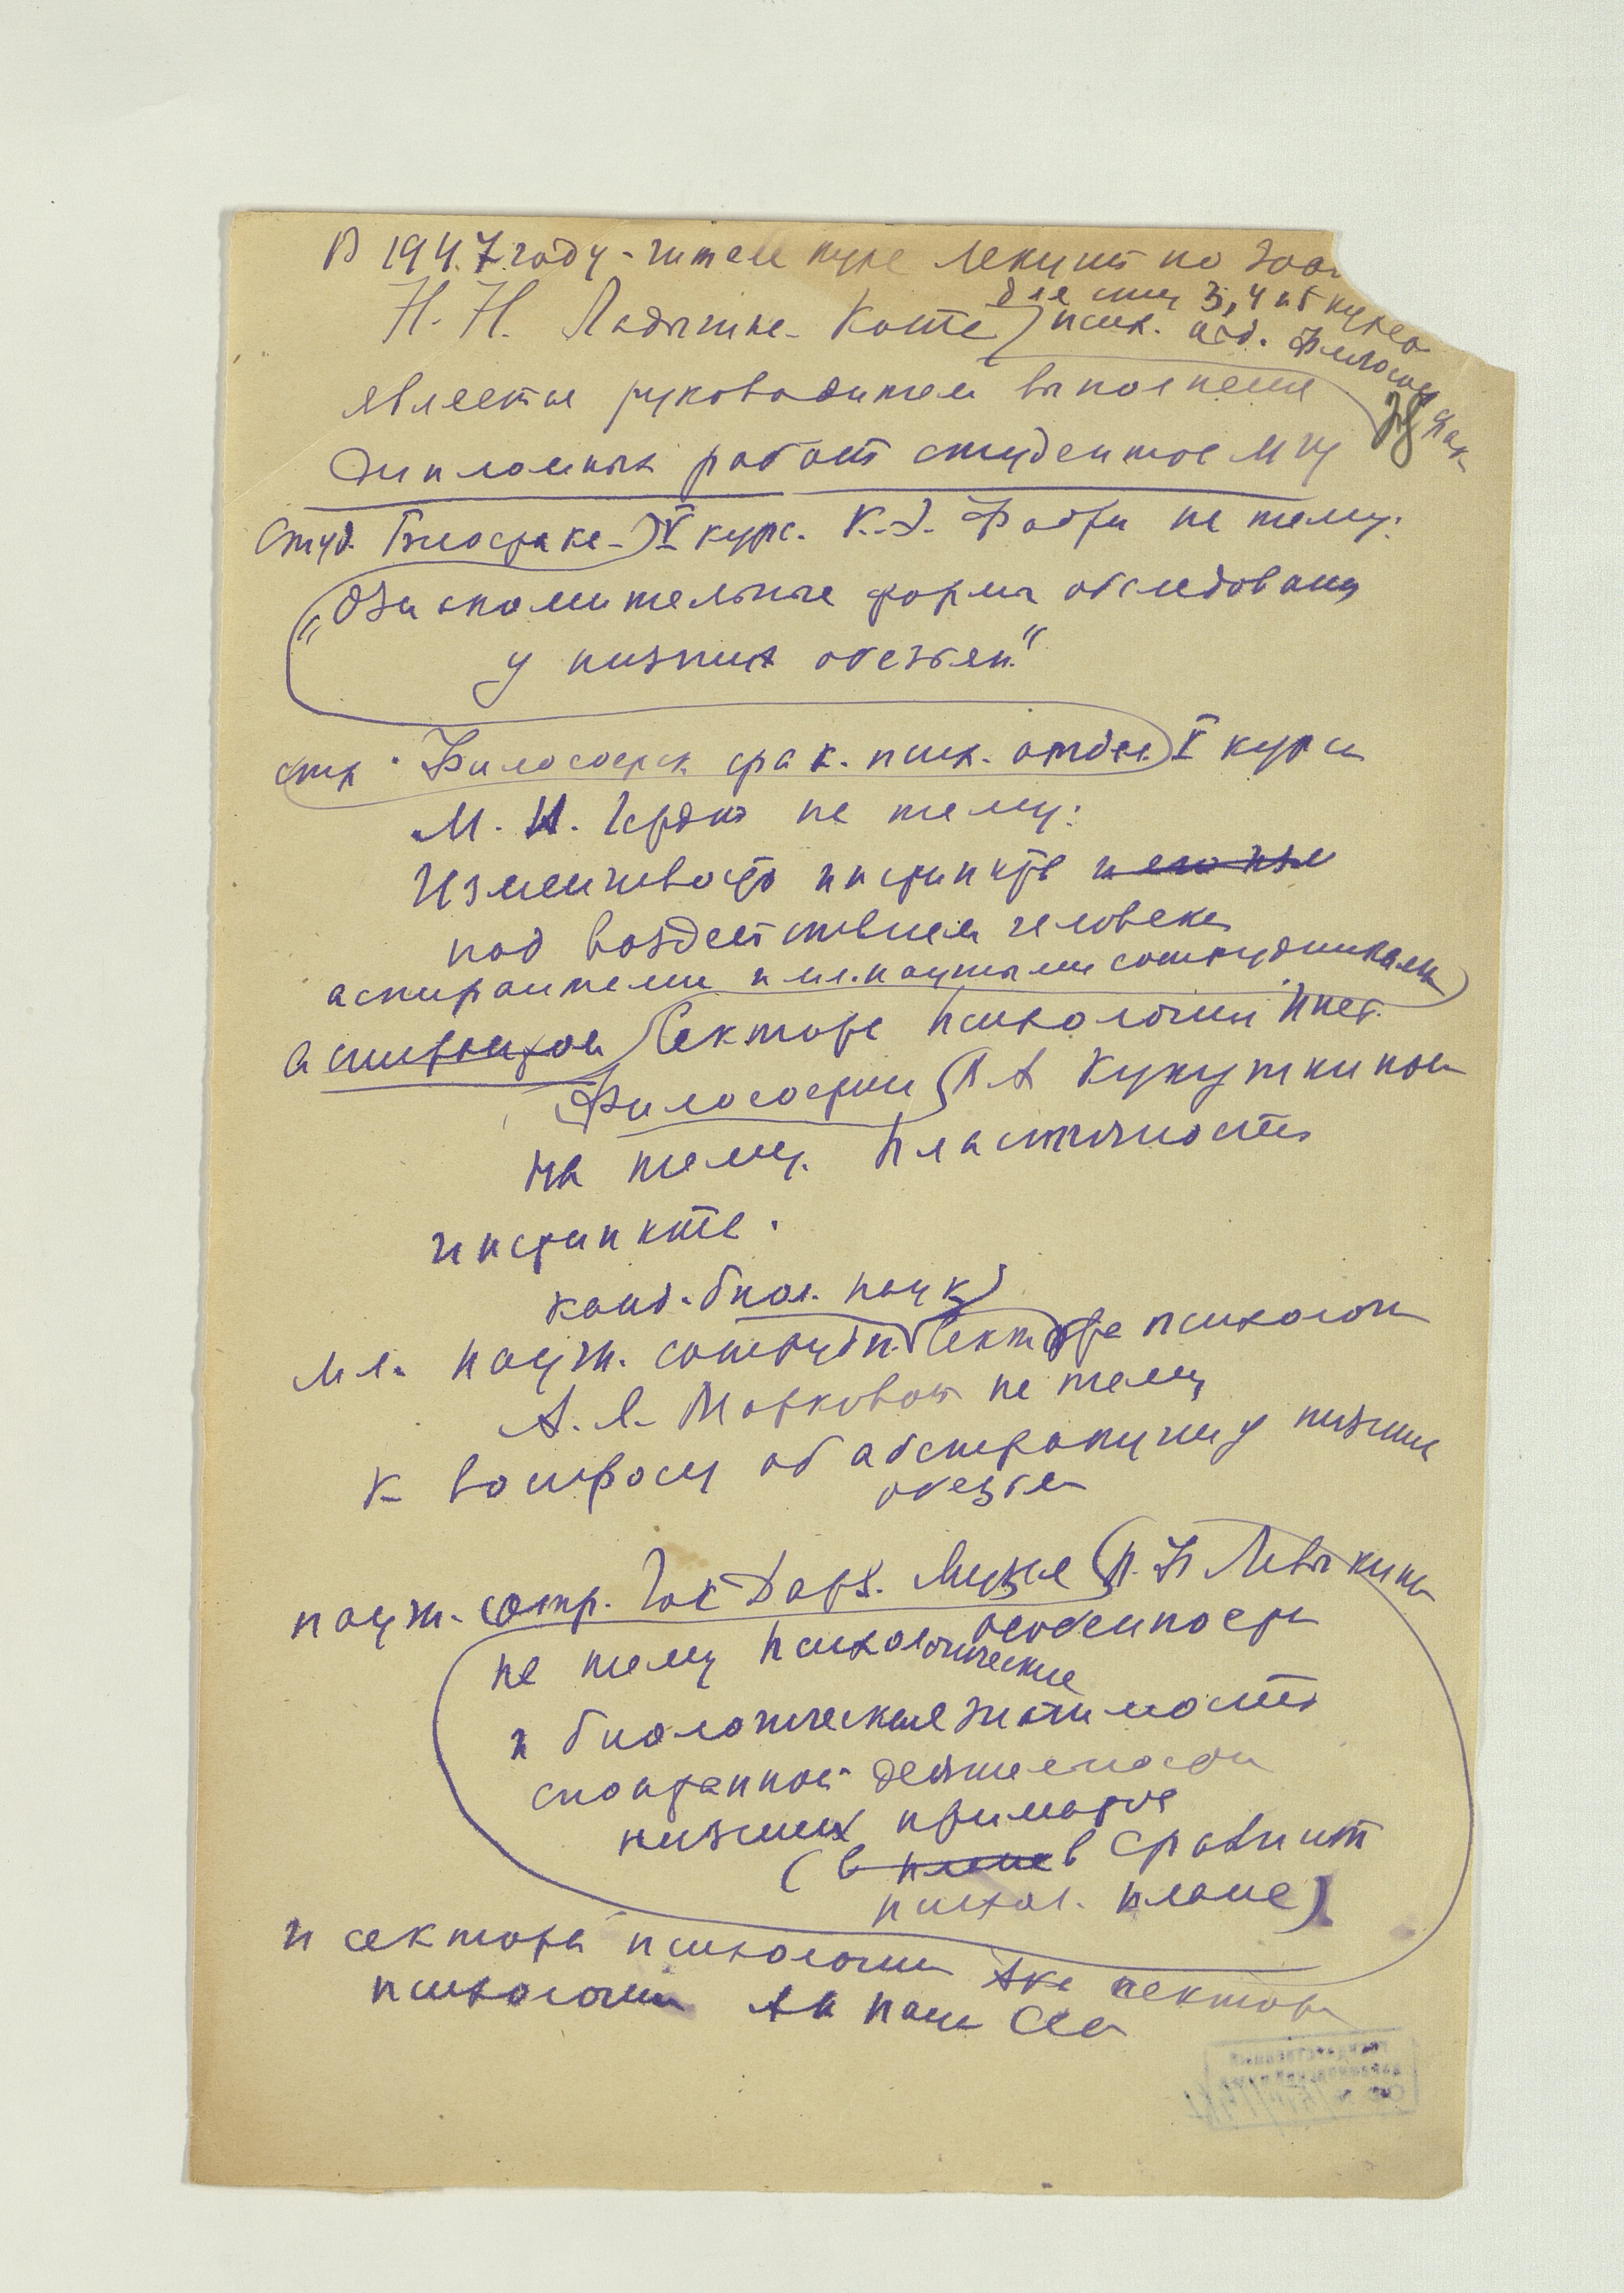 В 1947 году - читала курс лекций по зооп
для студ 3, 4 и 5 курсо
Н. Н. Ладыгина-Котс псих. отд. Философ Фак.
является руководителем выполнения
дипломных работ студентов МГУ
студ. Биофака - V курс. К. Э. Фабри на тему:
"Ознакомительные формы обследования
у низших обезьян."
Философск фак. псих. отдел. V курса
М. И. на тему:
Изменчивость инстинктов
под воздействием человека
аспирантами и мл. научными сотрудниками
аспирантом Сектора Психологии Инст.
Философии А Кукушкиной
на тему. Пластичность
инстинктов.
канд. биол. наук
мл. научн. сотрудн. Сектора психологии
А. Я. Марковой на тему
К вопросу об абстракции у низших
обезьян
научн. сотр. Гос Дарв. Музея Левыкиной
на тему Психологические особенности
и биологическая значимость
спонтанной деятельности
низших приматов
(в плане в сравнит
психол. плане)
и сектора психологии сектора
психологии Ак наук ССС